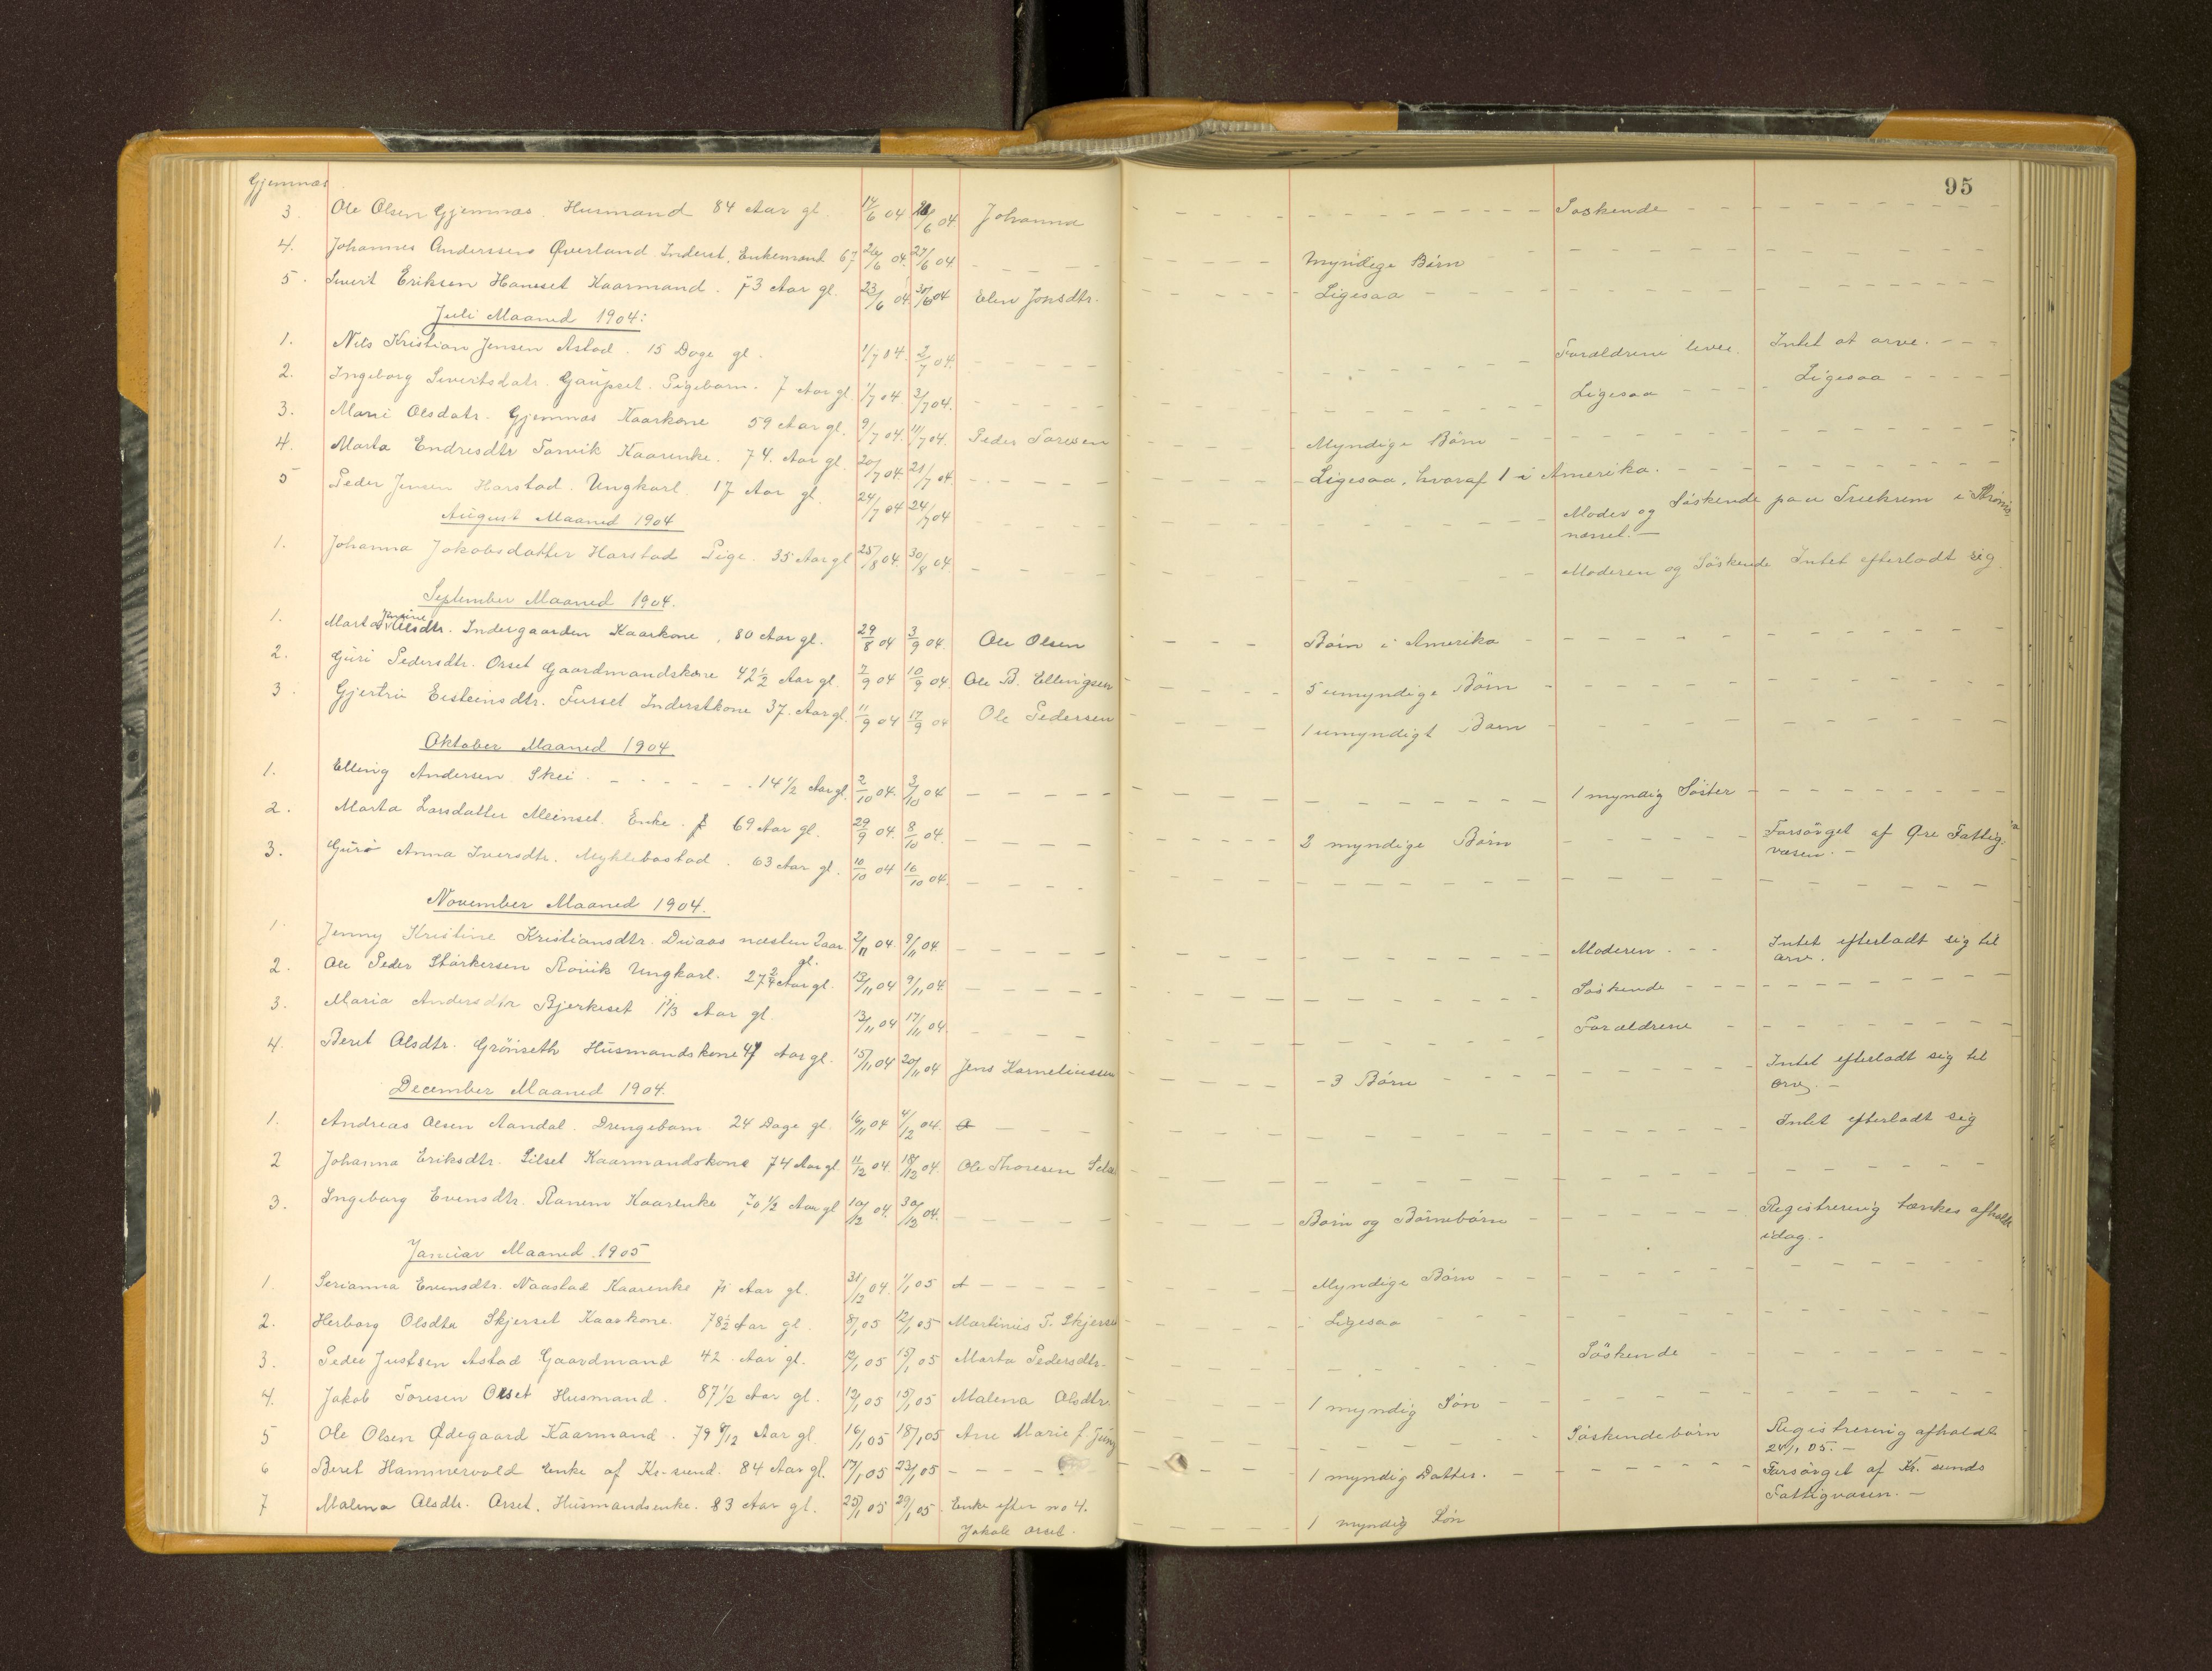 95
Gjemnæs
3. Ole Olsen Gjemnæs. Husmand 84 Aar gl. 14/6 04 /6 04. Johanna - - - Søskende - - -
4. Johannes Anderssens Øverland Inderst, Enkemand 67 20/6 04. 27/6 04. - - - Myndige Børn - - -
5. Sivert Eriksen Hanset Kaarmand. 73 Aar gl. 23/6 04 30/6 04 Elen Jonsdtr. - - - Ligesaa - - -
Juli Maaned 1904:
1. Nils Kristian Jensen Astad. 15 Dage gl. 1/7 04. 2/7 04. - - - Forældrene lever. Intet at arve. - - -
2. Ingeborg Sivertsdatr. Gaupset. Pigebarn. 7 Aar gl. 1/7 04. 3/7 04. - - - Ligesaa - - - Ligesaa - - -
3. Mari Olsdatr. Gjemnæs Kaarkone 59 Aar gl. 9/7 04. 11/7 04. Peder Toresen - - - Myndige Børn - - -
4. Marta Endresdtr Torvik Kaarenke. 74. Aar gl. 20/7 04. 21/7 04. - - - Ligesaa, hvoraf 1 i Amerika. - - -
5 Peder Jensen Harstad. Ungkarl. 17 Aar gl. 24/7 04 24/7 04 - - - Moder og Søskende paa Furuhrem i
næsset. -
August Maaned 1904
1. Johanna Jakobsdatter Harstad Pige. 35 Aar gl 25/8 04. 30/8 04. - - - Moderen og Søskende Intet efterladt sig.
September Maaned 1904.
1. Marta Olsdtr. Indergaarden Kaarkone, 80 Aar gl. 29/8 04 3/9 04. Ole Olsen - - - Børn i Amerika - - -
2. Guri Pedersdtr. Orset Gaardmandskone 42 1/2 Aar gl. 7/9 04 10/9 04. Ole B. Ellingsen - - - 5 umyndige Börn - - -
3. Gjertru Eisteinsdtr. Furset Inderstkone 37. Aar gl. 11/9 04 17/9 04 Ole Pedersen - - - 1 umyndigt Barn - - -
Oktober Maaned 1904
1. Elling Andersen Skei. - - - 14 1/2 Aar gl. 2/10 04. 3/10 04 - - - 1 myndig Søster - - -
2. Marta Larsdatter Meinset. Enke. 69 Aar gl. 29/9 04. 8/10 04. - - - 2 myndige Børn - - - Forsørget af Øre Fattig-
væsen. -
3. Guro Anna Iversdtr. Myklebostad. 63 Aar gl. 10/10 04 16/10 04. - - -
November Maaned 1904.
1. Jenny Kristine Kristiansdtr. Duaas næsten 2 aar gl. 2/11 04. 9/11 04. - - - Moderen. - - Intet efterladt sig til
arv.
2. Ole Peder Størkersen Roüik Ungkarl. 27 Aar gl. 13/11 04 9/11 04. - - - Søskende - - -
3. Maria Andersdtr Bjerkeset 1 1/3 Aar gl. 13/11 04 17/11 04. - - - Forældrene - - -
4. Beret Olsdtr. Grønseth Husmandskone 47 Aar gl. 15/11 04 20/11 04 Jens Korneliussen - - - 3 Børn - - - Intet efterladt sig til
arv. -
December Maaned 1904.
1. Andreas Olsen Aandal. Drengebarn 24 Dage gl. 16/11 04 4/12 04. - - - Intet efterladt sig
2 Johanna Eriksdtr. Silset Kaarmandskone 74 Aar gl. 11/12 04. 18/12 04. Ole Thoresen - - -
3. Ingeborg Evensdtr. Ranem Kaarenke 70 1/2 Aar gl 10/12 04. 30/12 04. - - - Børn og Børnebørn - - - Registrering tænkes afholdt
idag. -
Januar Maaned 1905
1. Serianna Evensdtr. Naastad Kaarenke 71 Aar gl. 31/12 04. 1/1 05 - - - Myndige Børn - - -
2. Herborg Olsdtr Skjerset Kaarkone. 78 1/2 Aar gl. 8/1 05 12/1 05 Martinus T. Skjerse - - - Ligesaa - - -
3. Peder Justsen Astad Gaardmand 42 Aar gl. 12/1 05 15/1 05 Marta Pedersdtr. - - - Søskende - - -
4. Jakob Toresen Orset Husmand. 87 1/2 Aar gl. 12/1 05 15/1 05 Malena Olsdtr. - - - 1 myndig Søn - - -
5 Ole Olsen Ødegaard Kaarmand. 79 8/12 Aar gl. 16/1 05 18/1 05 Ane Marie f. - - - Søskendebørn Registrering afholdt
24/1 05. -
6 Beret Hammervold Enke af Kr.sund. 84 Aar gl. 17/1 05 23/1 05 - - - 1 myndig Datter. - - - Forsørget af Kr.sunds
Fattigvæsen. -
7 Malena Olsdtr. Orset. Husmandsenke. 83 Aar gl. 25/1 05 29/1 05. Enke efter no 4.
Jakob Orset. - - - 1 myndig Søn